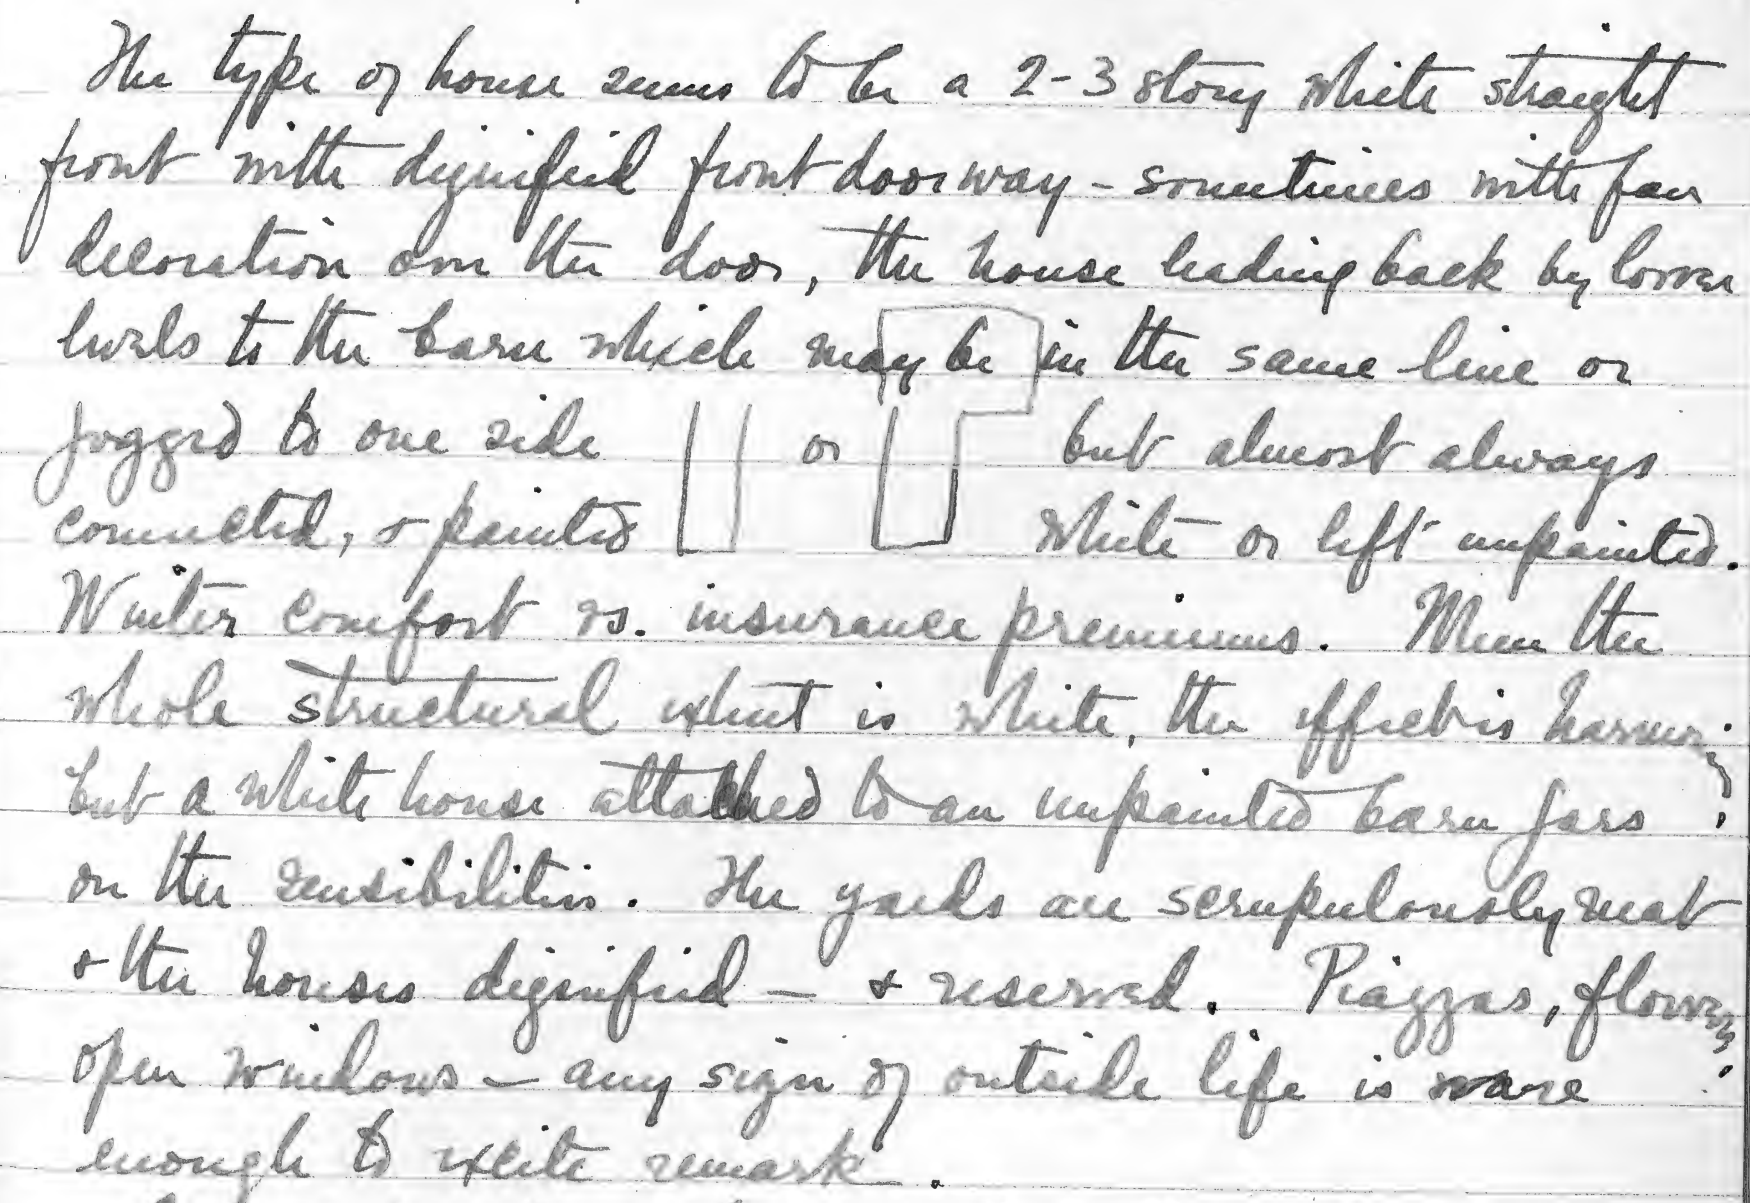 The type of house seems to be a 2-3 story white straight
front with dignified front doorway - sometimes with fan
decoration over the door, the house leading back by lower
levels to the barn which may be in the same line or
jogged to one side or but almost always
connected, & painted white or left unpainted.
Winter comfort vs. insurance premiums. When the
whole structural extent is white, the effect is harmony;
but a white house attached to an unpainted barn jars
on the sensibilities. The yards are scrupulously neat
& the houses dignified — & reserved. Piazzas, flowers,
open windows — any sign of outside life is rare
enough to excite remark.